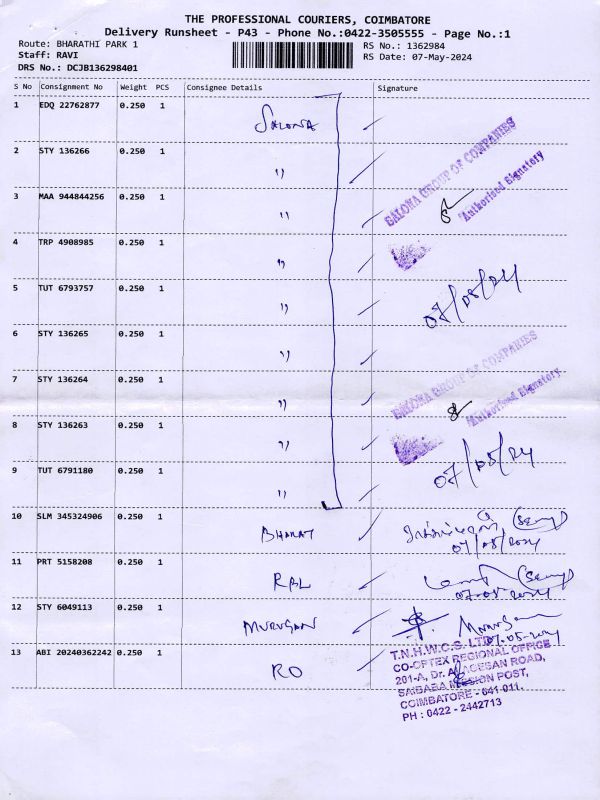 THE PROFESSIONAL COURIERS, COIMBATORE
Delivery Runsheet - P43 - Phone No.:0422-3505555 - Page No.:1
Route: BHARATHI PARK 1
RS No.: 1362984
Staff: RAVI
RS Date: 07-May-2024
DRS No.: DCJB136298401
S No Consignment No Weight PCS Consignee Details Signature
1 EDQ 22762877 0.250 1 SALONA
2 STY 136266 0.250 1 "
3 MAA 944844256 0.250 1 "
SALONA GROUP OF COMPANIES
Authorised Signatory
4 TRP 4908985 0.250 1 "
5 TUT 6793757 0.250 1 "
07/05/24
6 STY 136265 0.250 1 "
7 STY 136264 0.250 1 "
SALONA GROUP OF COMPANIES
Authorised Signatory
8 STY 136263 0.250 1 "
9 TUT 6791180 0.250 1 "
07/05/24
10 SLM 345324906 0.250 1 BHARAT
07/05/2024
11 PRT 5158208 0.250 1 RBL
07-05-2024
12 STY 6049113 0.250 1 MURUGAN
07.05-2024
13 ABI 20240362242 0.250 1 RO
T.N.H.W.C.S. LTD
CO-OPTEX REGIONAL OFFICE
201-A, Dr. ALAGESAN ROAD,
SAIBABA MISSION POST,
COIMBATORE - 641 011.
PH : 0422 - 2442713